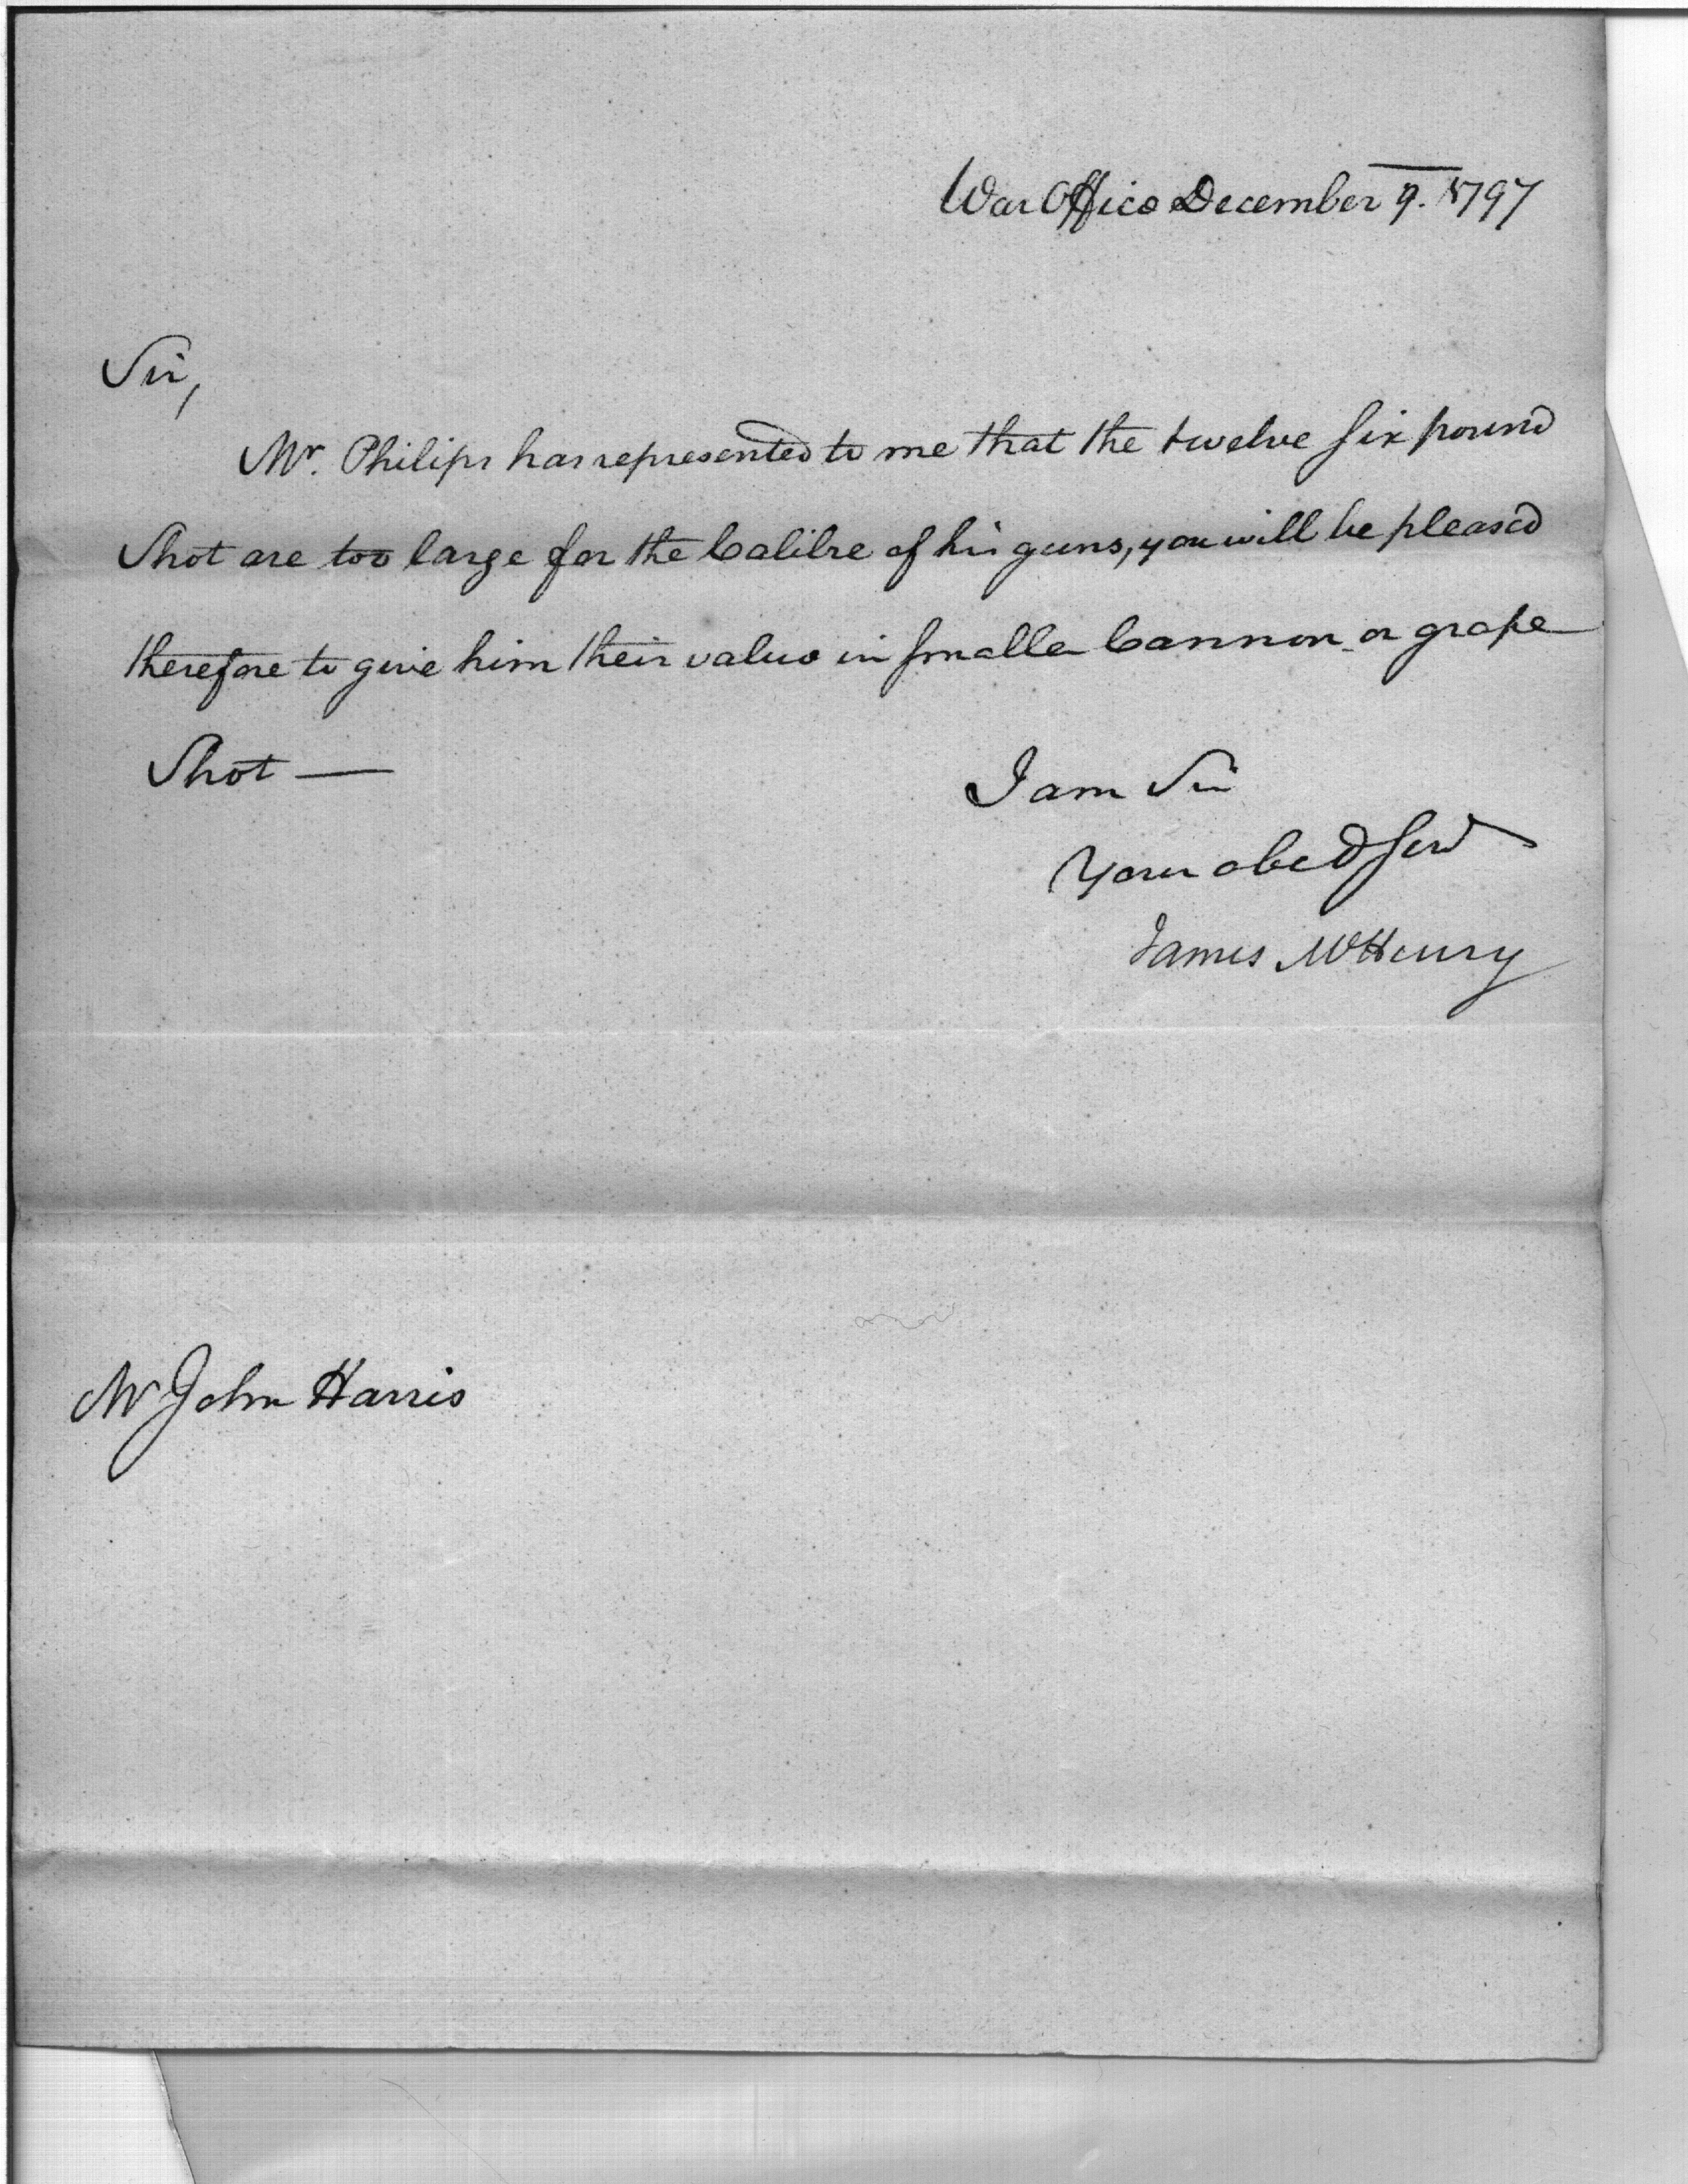 War Office December 9. 1797
Sir,
Mr. Philips has represented to me that the twelve six pound
Shot are too large for the Calibre of his guns, you will be pleased
therefore to give him their value in smaller Cannon or grape
Shot —
I am Sir
Your obed Servt
James McHenry
Mr John Harris